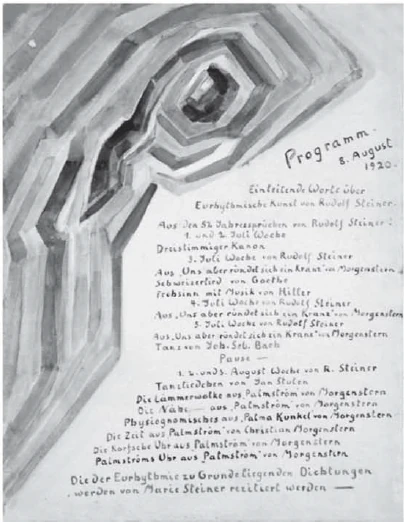 Programm.
8. August
1920.
Einleitende Worte über
Eurhythmische Kunst von Rudolf Steiner.
Aus den 52 Jahressprüchen von Rudolf Steiner:
1. und 2. Juli Woche
Dreistimmiger Kanon
3. Juli Woche von Rudolf Steiner
Aus „Uns aber ründet sich ein Kranz" von Morgenstern
Schweizerlied von Goethe
mit Musik von
4. Juli Woche von Rudolf Steiner
Aus „Uns aber ründet sich ein Kranz" von Morgenstern
5. Juli Woche von Rudolf Steiner
Aus „Uns aber ründet sich ein Kranz" von Morgenstern
Tanz von Joh. Seb. Bach
Pause —
1. 2. und 3. August Woche von R. Steiner
Tanzliedchen von Jan Stuten
Die Lämmerwolke aus „Palmström" von Morgenstern
Die Nähe — aus „Palmström" von Morgenstern
Physiognomisches aus „Palma Kunkel" von Morgenstern
Die Zeit aus „Palmström" von Christian Morgenstern
Die Korfsche Uhr aus „Palmström" von Morgenstern
Palmströms Uhr aus „Palmström" von Morgenstern
Die der Eurhythmie zu Grunde liegenden Dichtungen
werden von Marie Steiner rezitiert werden —